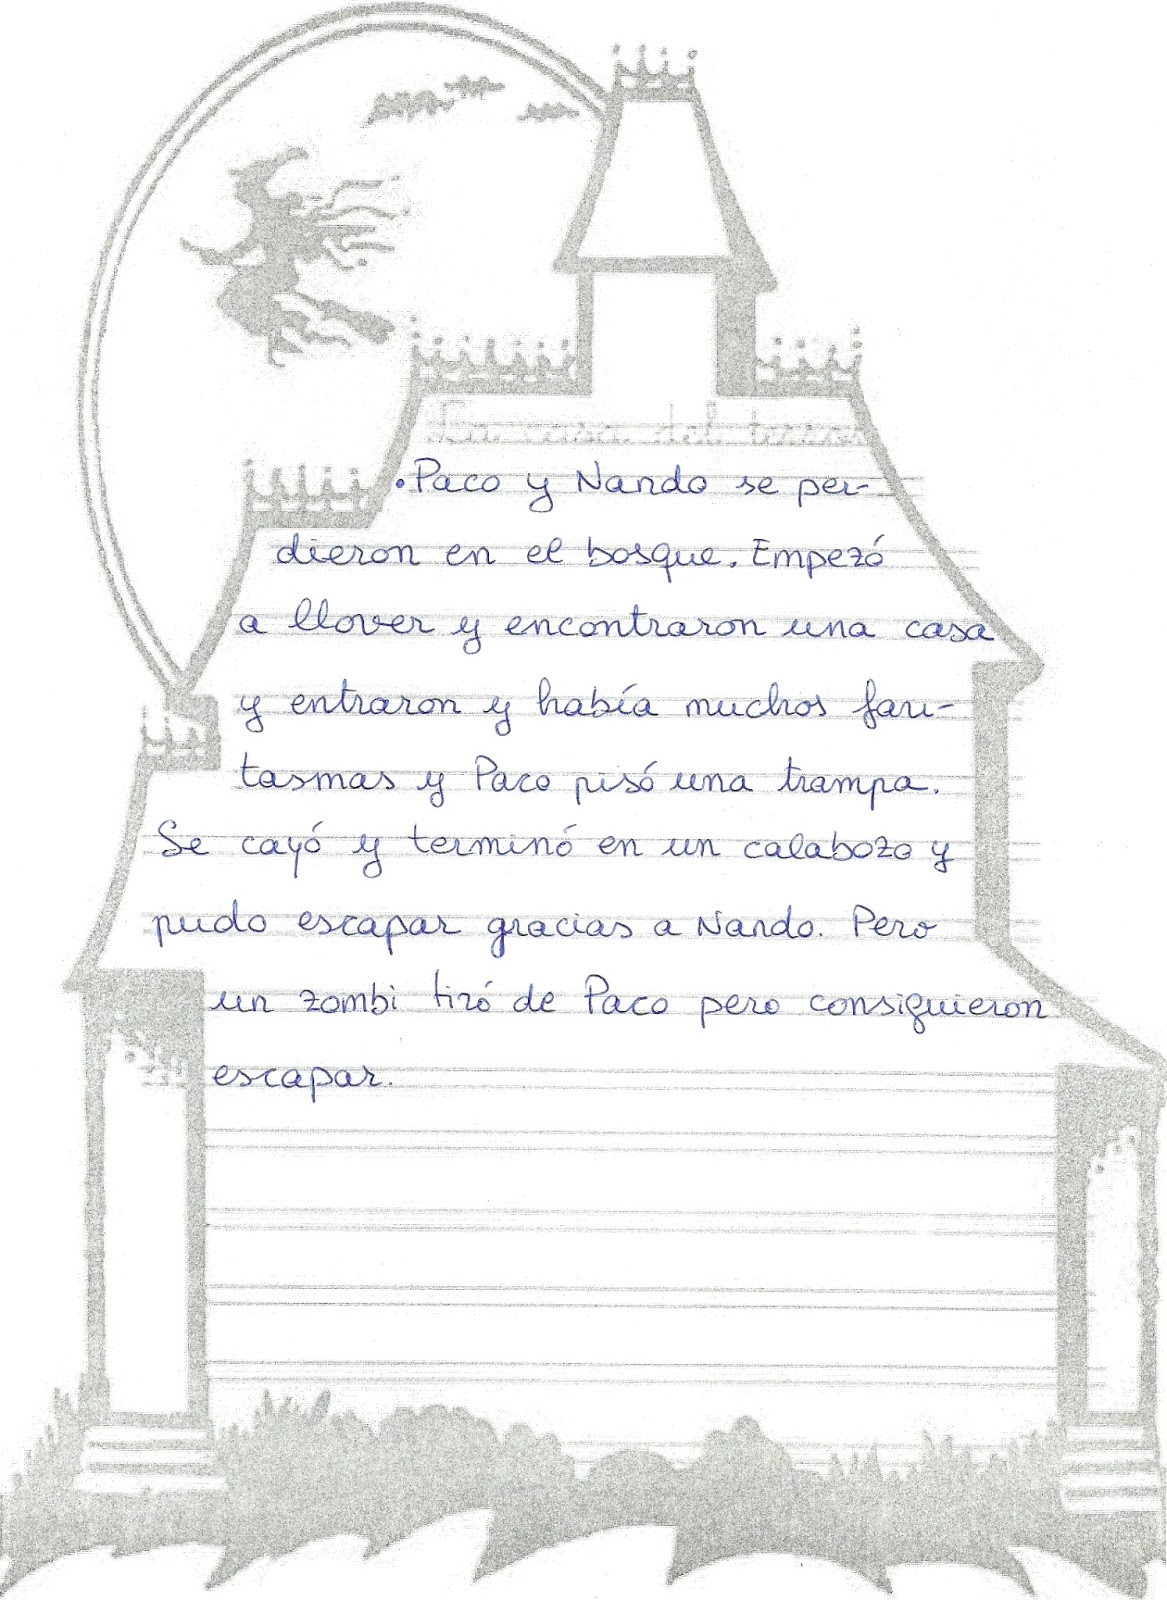 •Paco y Nando se per-
dieron en el bosque. Empezó
a llover y encontraron una casa
y entraron y había muchos fan-
tasmas y Paco pisó una trampa.
Se cayó y terminó en un calabozo y
pudo escapar gracias a Nando. Pero
un zombi tiró de Paco pero consiguieron
escapar.